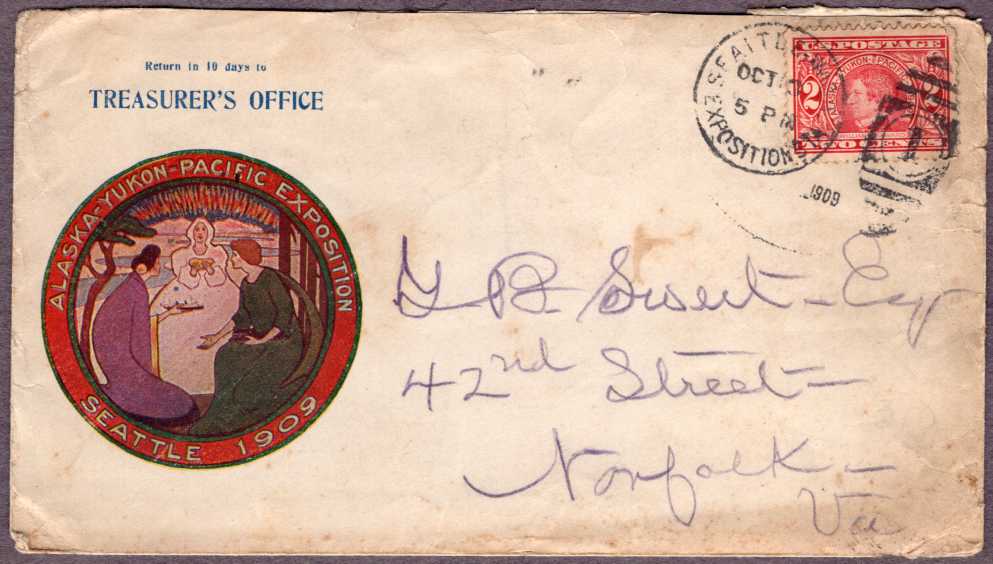 Return in 10 days to
TREASURER'S OFFICE
ALASKA-YUKON-PACIFIC EXPOSITION
SEATTLE 1909
SEATTLE
OCT
5 PM
EXPOSITION
1909
U.S. POSTAGE
ALASKA-YUKON-PACIFIC
2 2
TWO CENTS
Sweet - Esq
42nd Street -
Norfolk -
Va